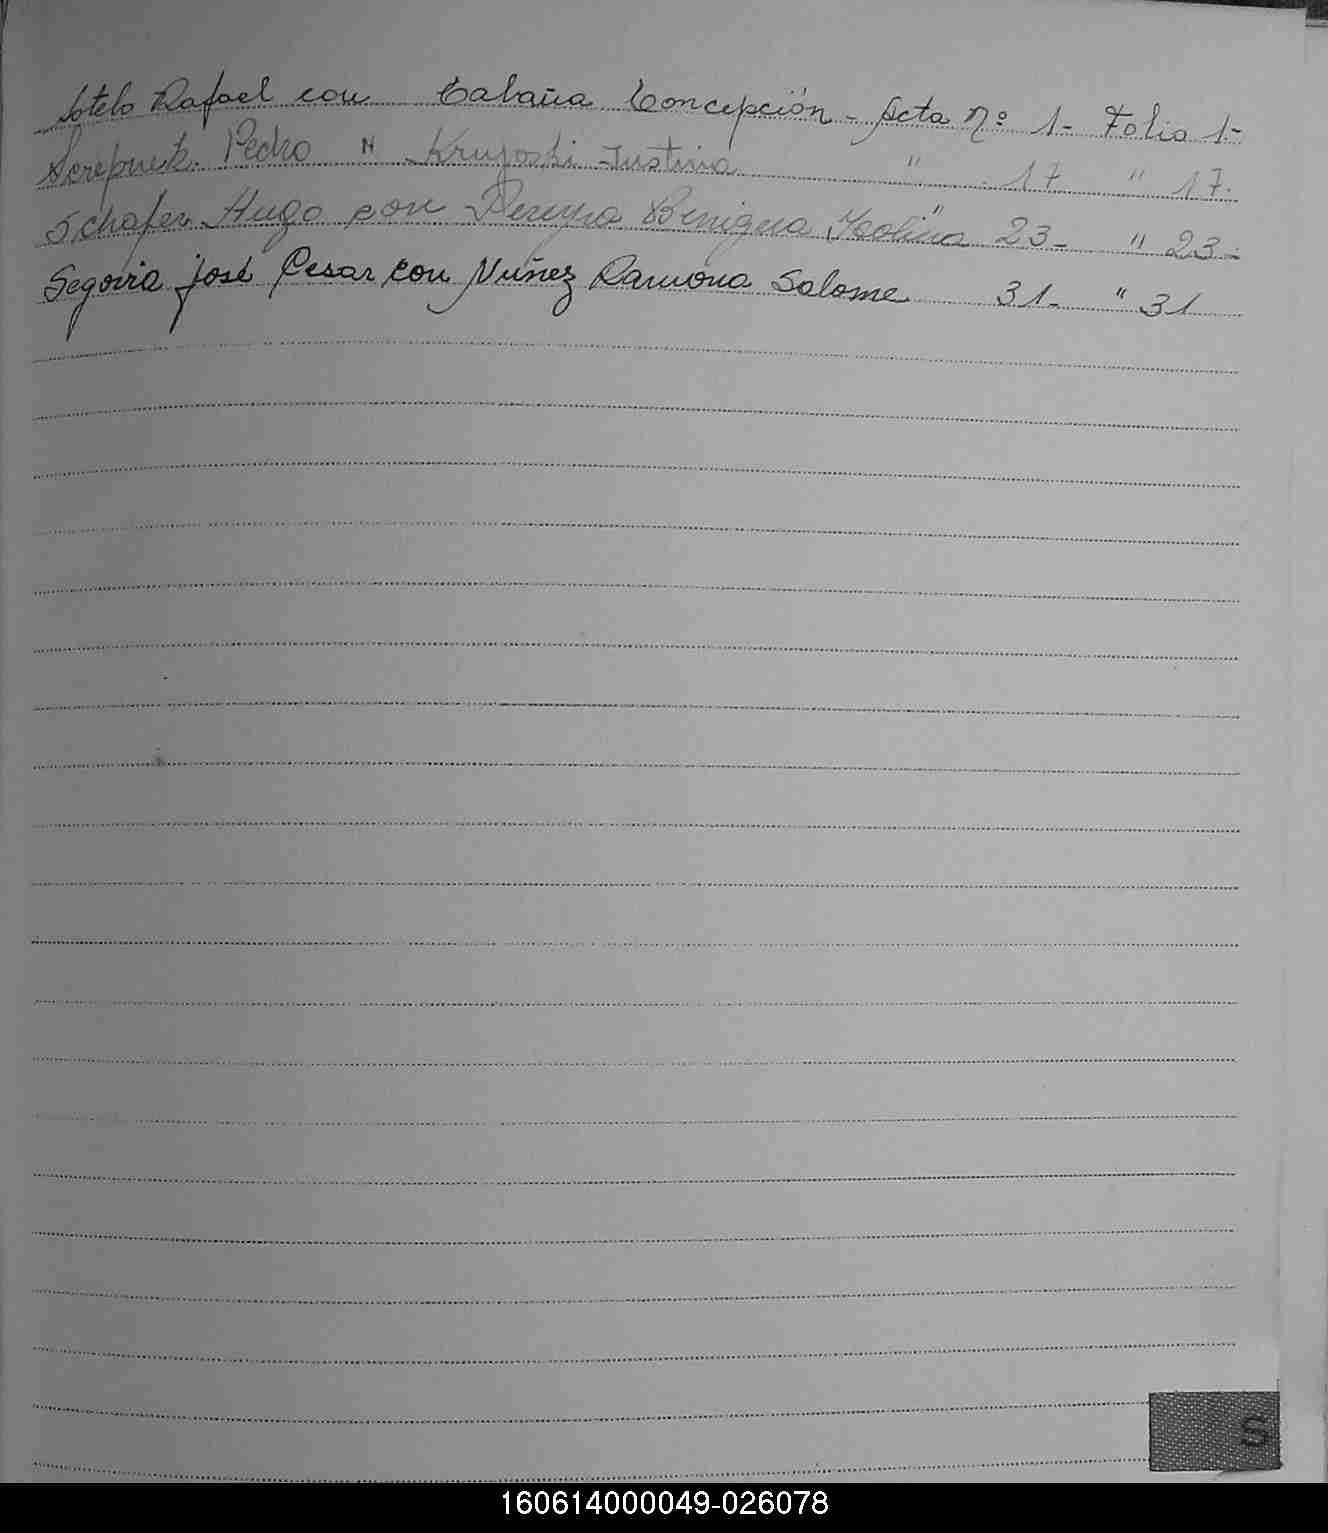 Sotelo Rafael con Cabaña Concepción - Acta Nº 1- Folio 1-
Serepnek Pedro " Krujoski Justina " 17 " 17.
Schafer Hugo con Pereyra Benigna Isolina " 23- " 23-
Segovia José Cesar con Nuñez Ramona Salome 31- " 31
S
160614000049-026078